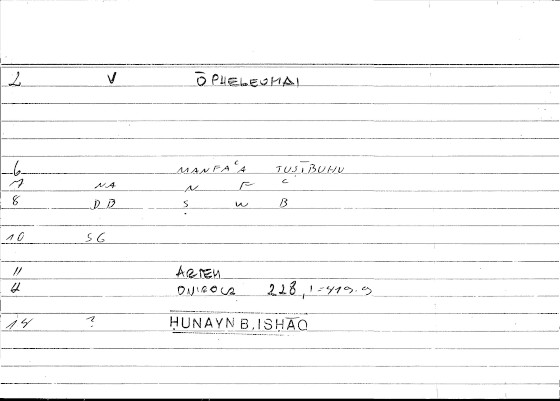 2 V ŌPHELEUMAI
6 MANFAʿA TUṢĪBUHU
7 NA N F ʿ
8 DB Ṣ W B
10 SG
11 ARTEM
4 ONIROCR 228,1-419.9
14 ? ḤUNAYN B. ISḤĀQ